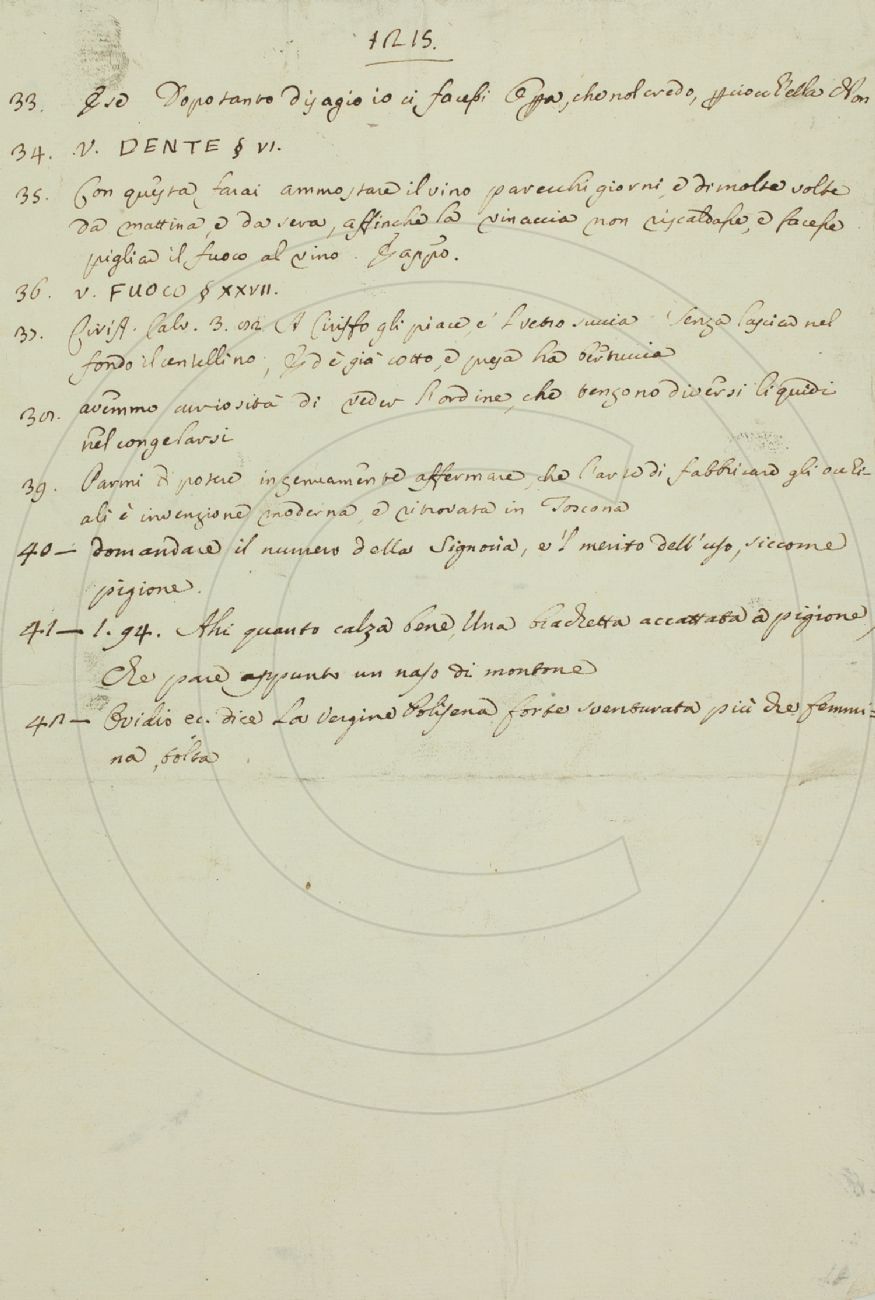 1215.
33. E se Dopo tanto disagio io ci facessi Ceppa, che nol credo, ella Non
34. V. DENTE § VI.
35. Con questa farai ammostare il vino parecchi giorni, e di molte volte
da mattina, e da sera, affinchè la vinaccia non riscaldasse, e facesse
pigliar il fuoco al vino. E appo.
36. V. FUOCO § XXVII.
37. Ciriff. Calv. 3. 82 A Ciriffo gli piace, e 'l vetro succia Senza lasciar nel
fondo il centellino, E d è già cotto, e presa ha bertuccia
38. avemmo curiosità di veder l'ordine, che tengono diversi liquidi
nel congelarsi
39. Parmi di potere ingenuamente affermare, che l'arte di fabbricare gli occhi-
ali è invenzione moderna, e ritrovata in Toscana
40 — Domandare il numero della Signoria, e 'l merito dell'uso, siccome
pigione.
41 — 1. 94. Ahi quanto calza bene, Una brachetta accattata a pigione,
Che pare appunto un naso di montone
42 — Ovidio ec. dice La Vergine Polisena, forte sventurata più che femmi=
na, tolta